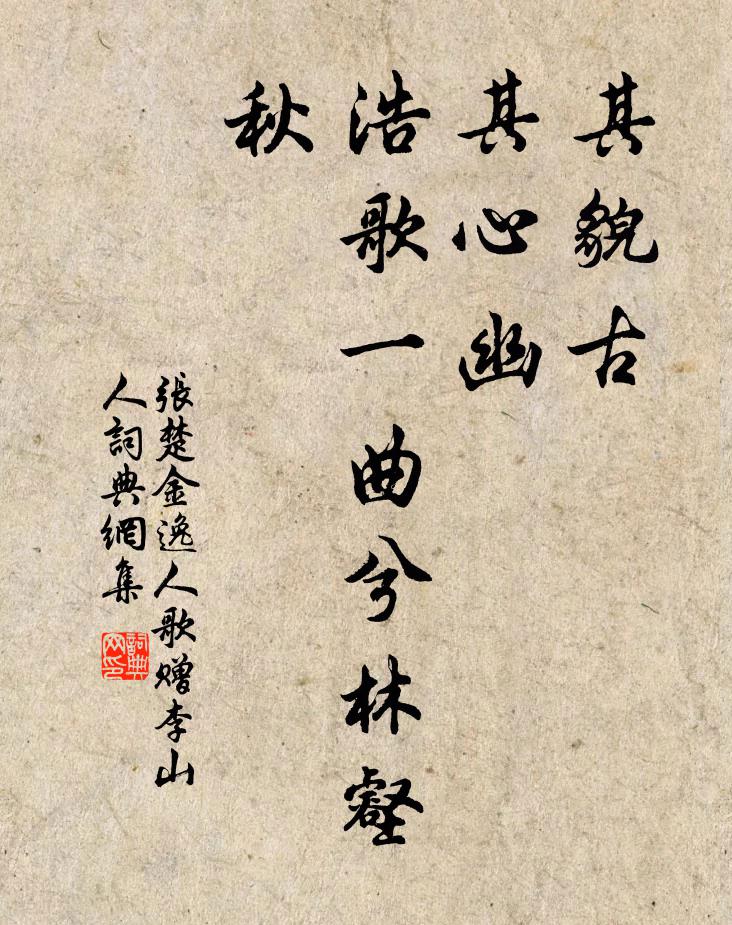 其貌古
其心幽
浩歌一曲兮林壑
秋
張楚金逸人歌贈李山
人詞典網集
詞典
网印